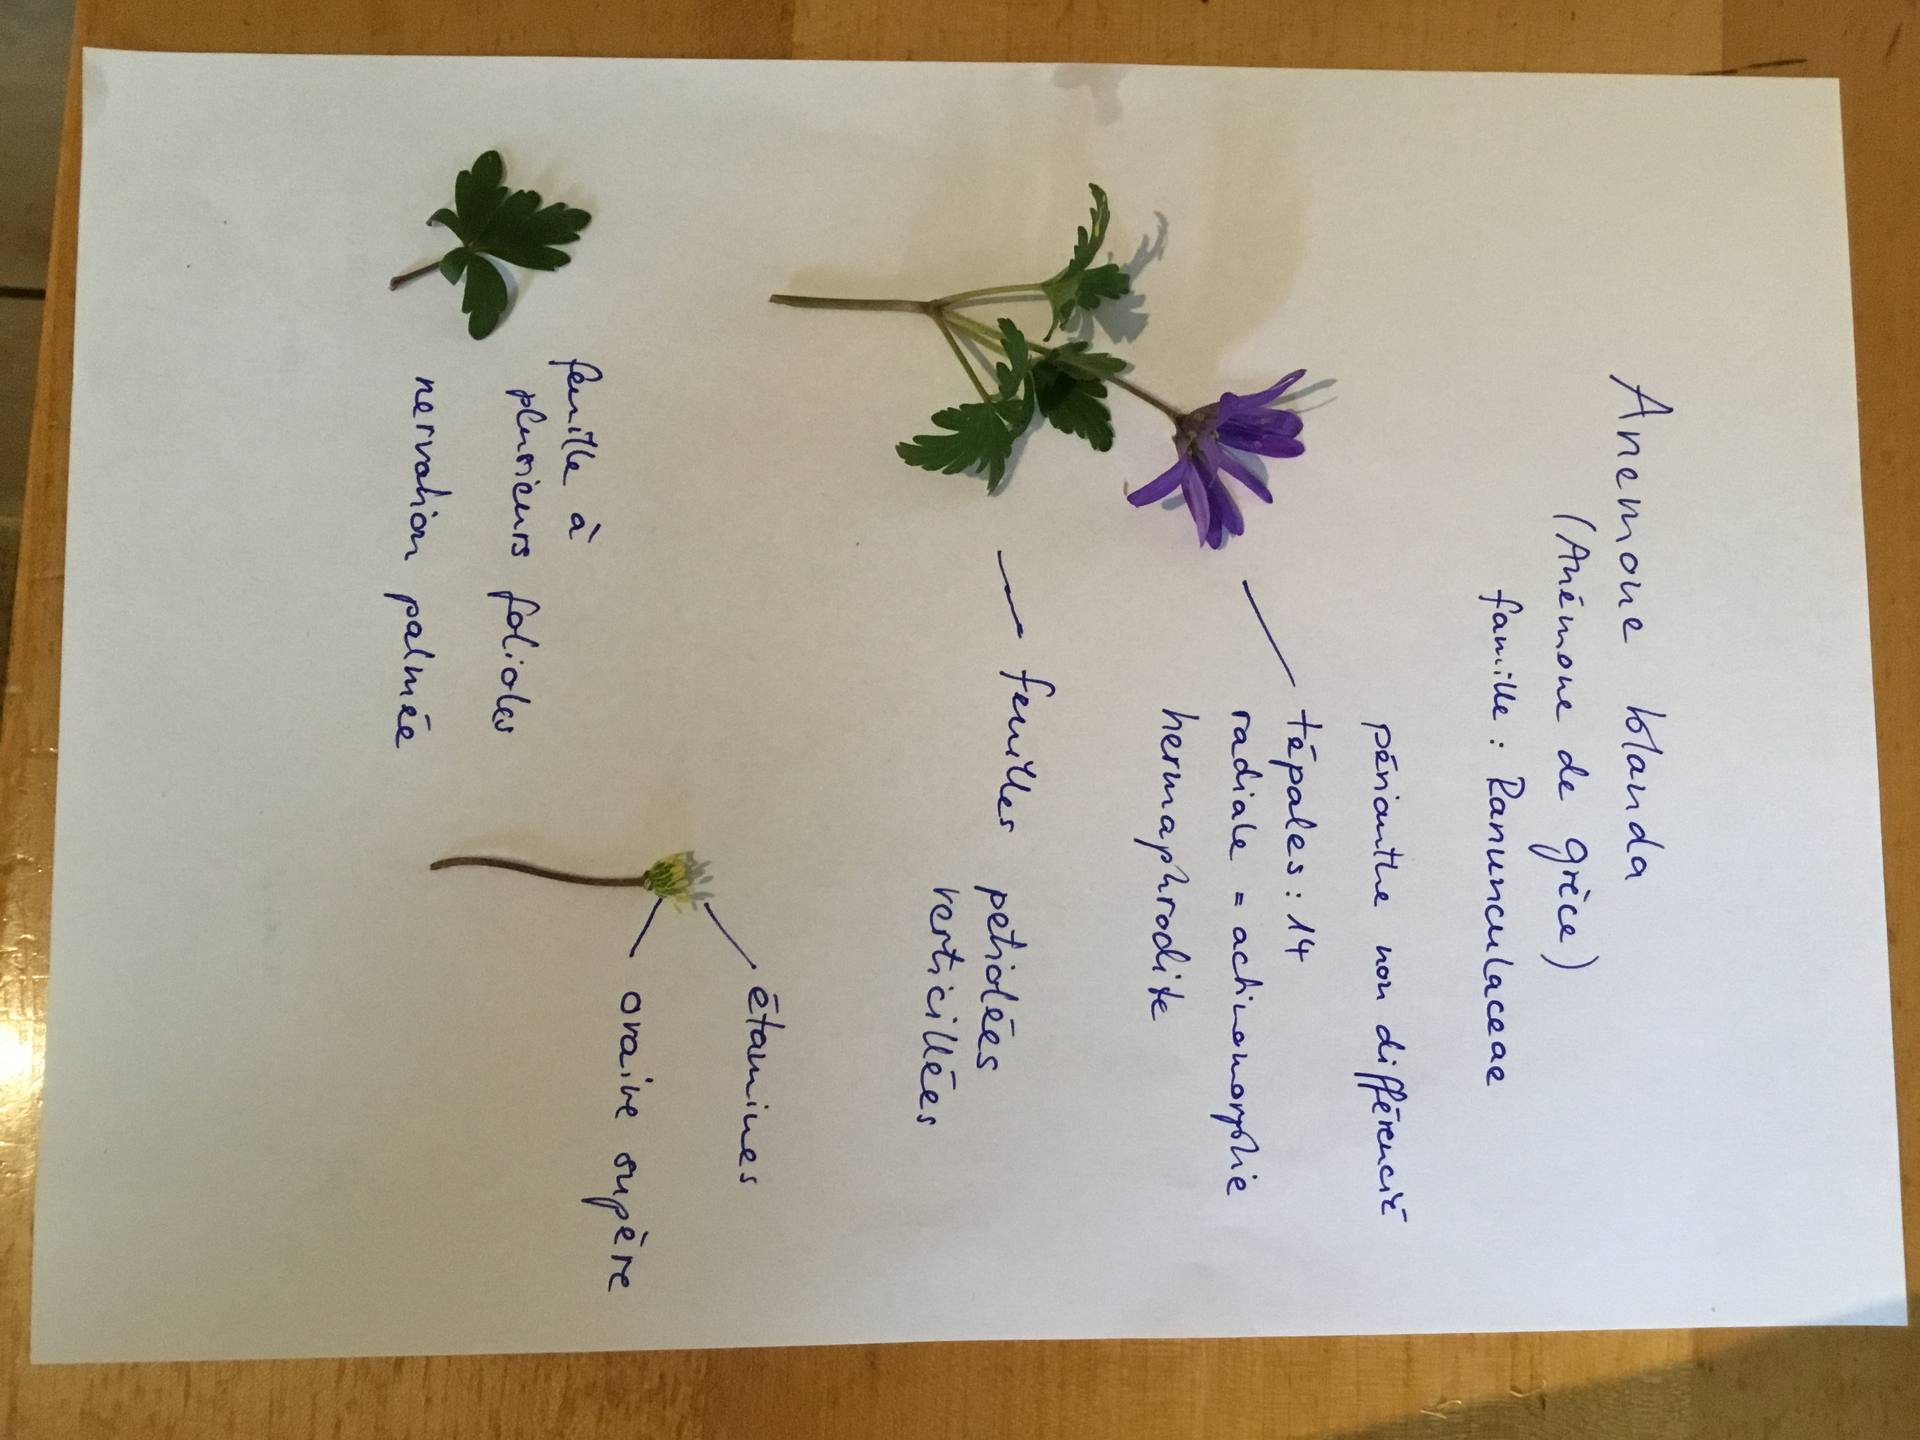 Anemone blanda
(Anémone de Grèce)
famille : Ranunculaceae
périanthe non différencié
tépales : 14
radiale = actinomorphie
hermaphrodite
feuilles pétiolées
verticillées
étamines
ovaire supère
feuille à
plusieurs folioles
nervation palmée